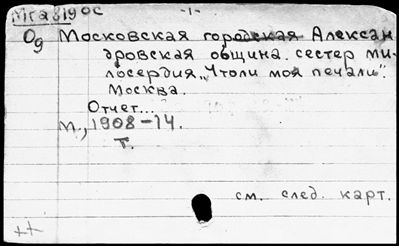 Мга819 ос -1-
Од Московская городская Алексан
дровская община сестер ми-
лосердия "Утоли моя печали".
Москва.
Отчет...
М., 1908-14.
Т.
см. след. карт.
++